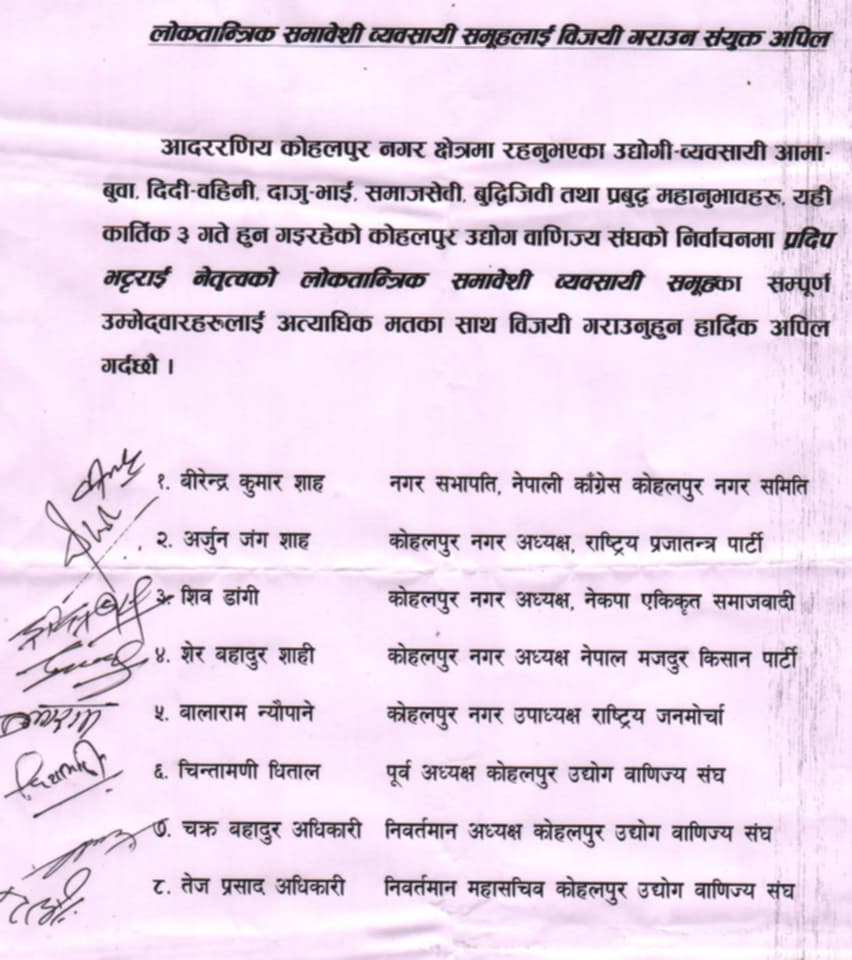 लोकतान्त्रिक समावेशी व्यवसायी समूहलाई विजयी गराउन संयुक्त अपिल
आदररणिय कोहलपुर नगर क्षेत्रमा रहनुभएका उद्योगी-व्यवसायी आमा-
बुवा, दिदी-वहिनी, दाजु-भाई, समाजसेवी, बुद्धिजिवी तथा प्रबुद्ध महानुभावहरु, यही
कार्तिक ३ गते हुन गइरहेको कोहलपुर उद्योग वाणिज्य संघको निर्वाचनमा प्रदिप
भट्टराई नेतृत्वको लोकतान्त्रिक समावेशी व्यवसायी समूहका सम्पूर्ण
उम्मेदवारहरुलाई अत्याधिक मतका साथ विजयी गराउनुहुन हार्दिक अपिल
गर्दछौ ।
१. बीरेन्द्र कुमार शाह नगर सभापति, नेपाली काँग्रेस कोहलपुर नगर समिति
२. अर्जुन जंग शाह कोहलपुर नगर अध्यक्ष, राष्ट्रिय प्रजातन्त्र पार्टी
३. शिव डांगी कोहलपुर नगर अध्यक्ष, नेकपा एकिकृत समाजवादी
४. शेर बहादुर शाही कोहलपुर नगर अध्यक्ष नेपाल मजदुर किसान पार्टी
५. बालाराम न्यौपाने कोहलपुर नगर उपाध्यक्ष राष्ट्रिय जनमोर्चा
६. चिन्तामणी धिताल पूर्व अध्यक्ष कोहलपुर उद्योग वाणिज्य संघ
७. चक्र बहादुर अधिकारी निवर्तमान अध्यक्ष कोहलपुर उद्योग वाणिज्य संघ
८. तेज प्रसाद अधिकारी निवर्तमान महासचिव कोहलपुर उद्योग वाणिज्य संघ